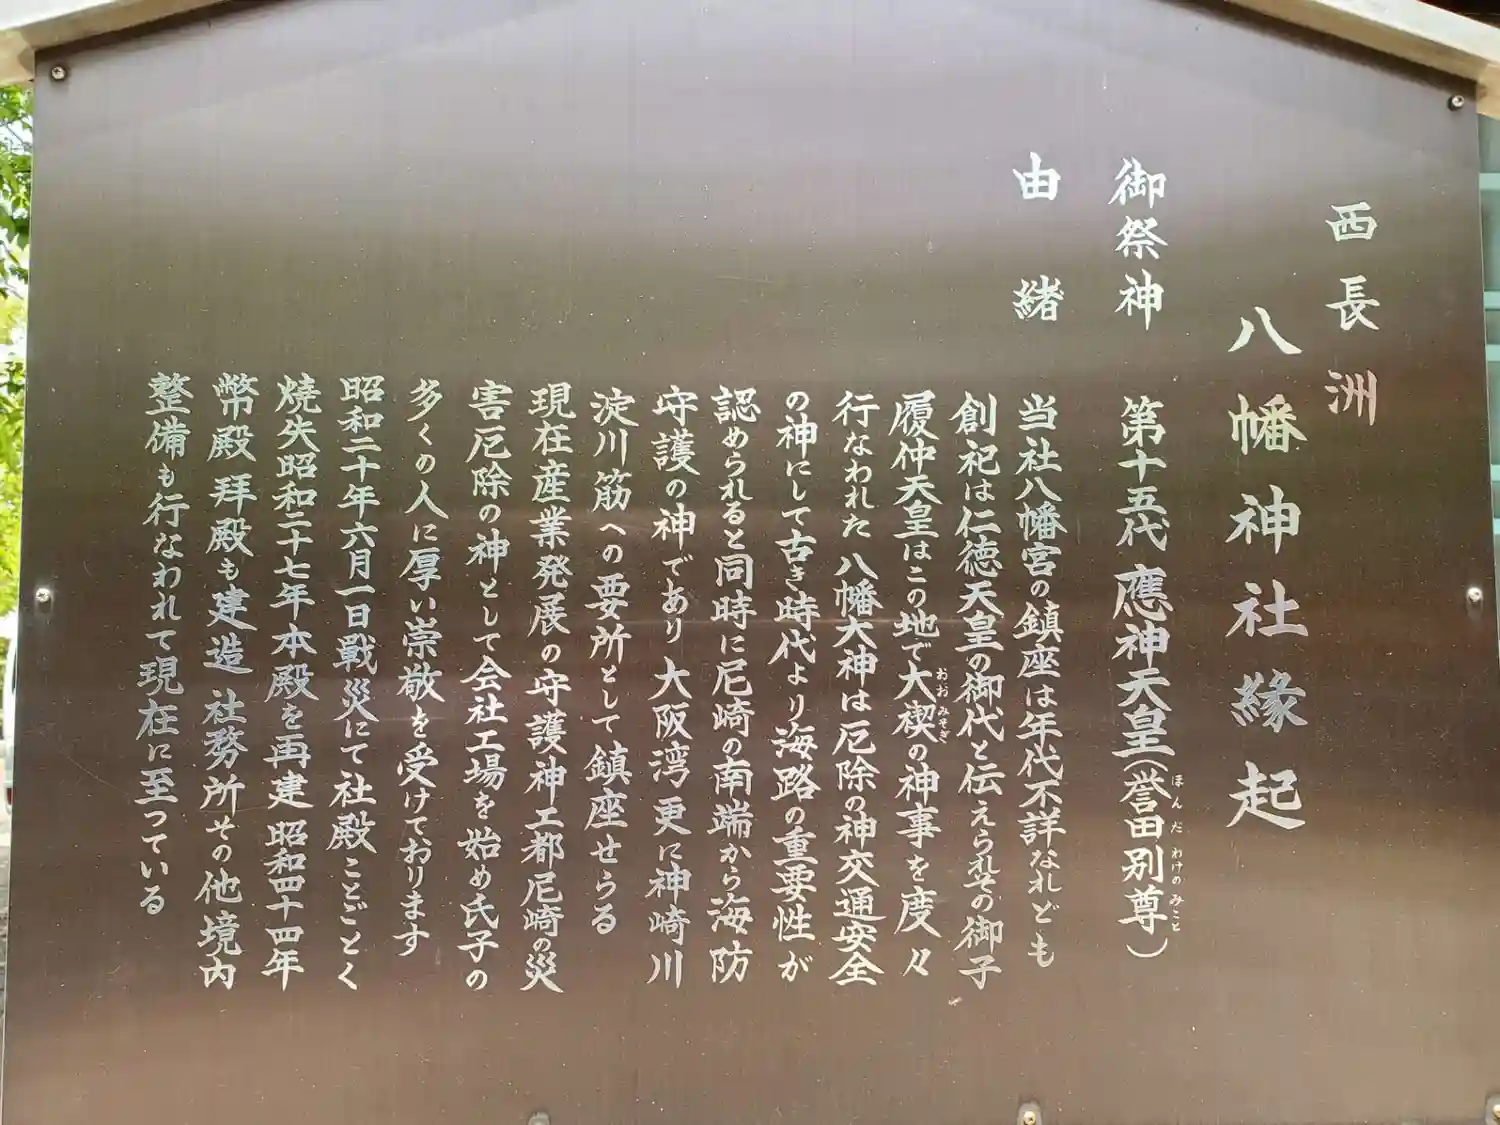 西長洲
八幡神社縁起
御祭神　第十五代應神天皇(誉田別尊)
ほんだわけのみこと
由緒　当社八幡宮の鎮座は年代不詳なれども
創祀は仁徳天皇の御代と伝えられその御子
履仲天皇はこの地で大禊の神事を度々
おおみそぎ
行なわれた八幡大神は厄除の神交通安全
の神にして古き時代より海路の重要性が
認められると同時に尼崎の南端から海防
守護の神であり大阪湾更に神崎川
淀川筋への要所として鎮座せらる
現在産業発展の守護神工都尼崎の災
害厄除の神として会社工場を始め氏子の
多くの人に厚い崇敬を受けております
昭和二十年六月一日戦災にて社殿ことごとく
焼失昭和二十七年本殿を再建昭和四十四年
幣殿拝殿も建造社務所その他境内
整備も行なわれて現在に至っている